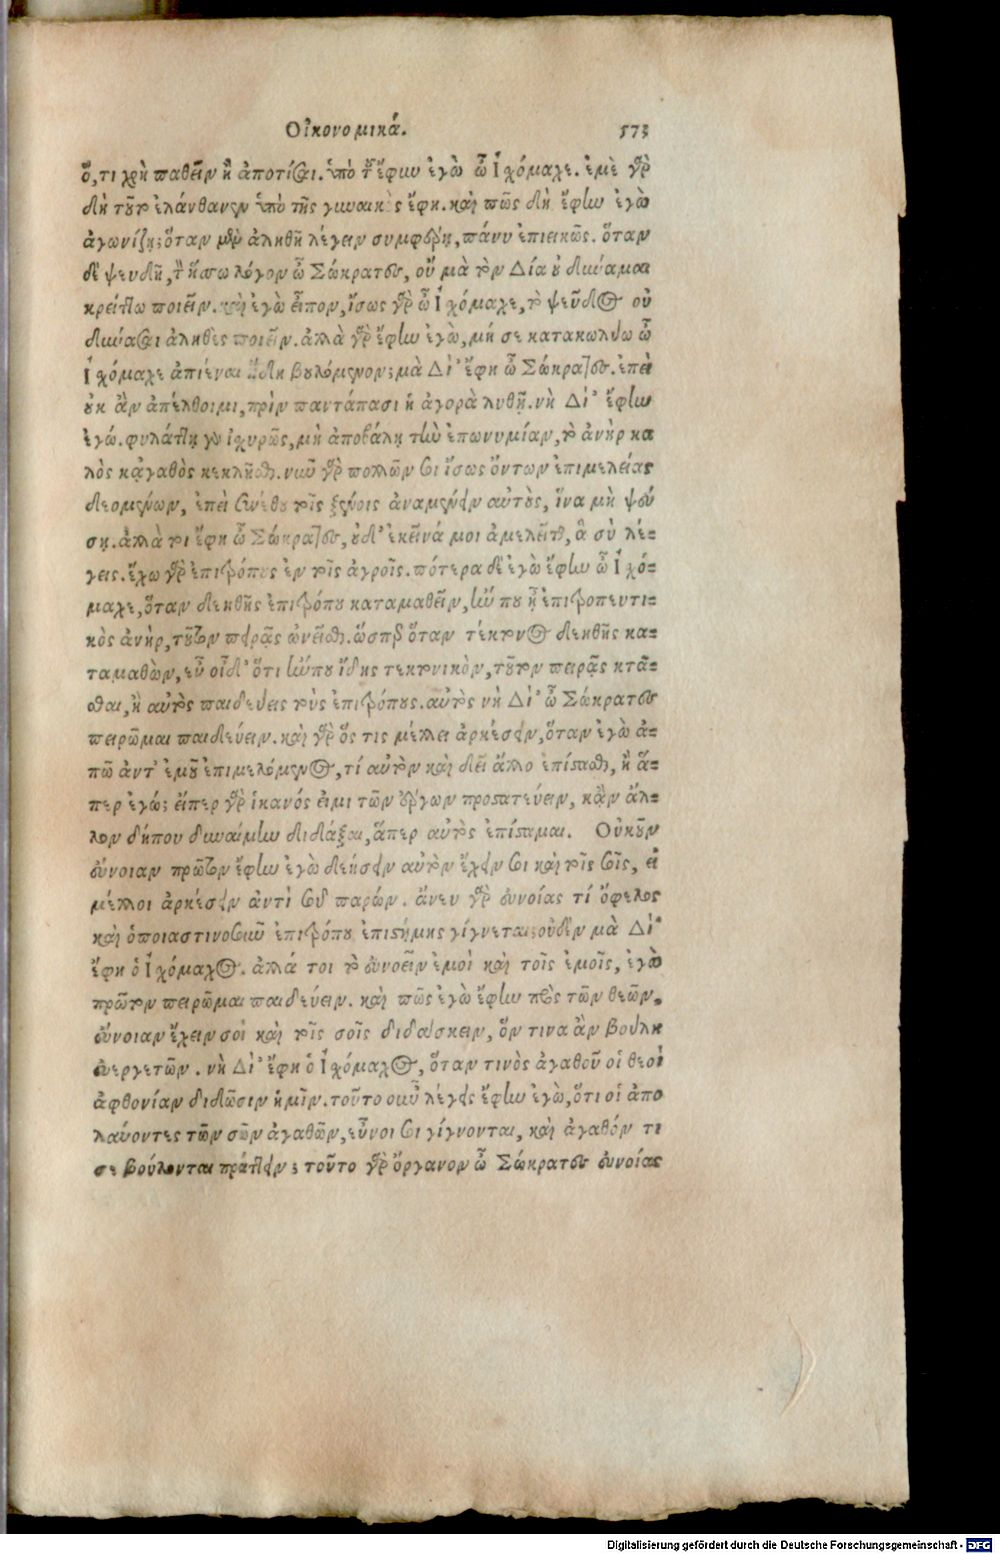 Οἰκονομικά. 573
ὅ,τι χρὴ παθεῖν ἢ ἀποτίσαι. ὑπὸ τοῦ ἔφην ἐγὼ ὦ Ἰχόμαχε. ἐμὲ γὰρ
δὴ τοῦτο ἐλάνθανεν ὑπὸ τῆς γυναικός ἔφη. καὶ πῶς δὴ ἔφην ἐγὼ
ἀγωνίζῃ; ὅταν μὲν ἀληθῆ λέγειν συμφέρῃ, πάνυ ἐπιεικῶς. ὅταν
δὲ ψευδῆ, τὸν ἥττω λόγον ὦ Σώκρατες, οὐ μὰ τὸν Δία οὐ δύναμαι
κρείττω ποιεῖν. καὶ ἐγὼ εἶπον, ἴσως γὰρ ὦ Ἰχόμαχε, τὸ ψεῦδος οὐ
δύνασαι ἀληθὲς ποιεῖν. ἀλλὰ γὰρ ἔφην ἐγὼ, μή σε κατακωλύω ὦ
Ἰχόμαχε ἀπιέναι ἤδη βουλόμενον; μὰ Δί' ἔφη ὦ Σώκρατες. ἐπεὶ
οὐκ ἂν ἀπέλθοιμι, πρὶν παντάπασι ἡ ἀγορὰ λυθῇ. νὴ Δί' ἔφην
ἐγώ. φυλάττῃ γὰρ ἰχυρῶς, μὴ ἀποβάλῃ τὴν ἐπωνυμίαν, τὸ ἀνὴρ κα
λὸς κἀγαθὸς κεκλῆσθαι. νῦν γὰρ πολλῶν σοι ἴσως ὄντων ἐπιμελείας
δεομένων, ἐπεὶ συνέθου τοῖς ξένοις ἀναμένειν αὐτοὺς, ἵνα μὴ ψεύ
σῃ. ἀλλὰ τοι ἔφη ὦ Σώκρατες, οὐδ' ἐκεῖνά μοι ἀμελεῖται, ἃ σὺ λέ-
γεις. ἔχω γὰρ ἐπιτρόπους ἐν τοῖς ἀγροῖς. πότερα δὲ ἐγὼ ἔφην ὦ Ἰχό-
μαχε, ὅταν δεηθῇς ἐπιτρόπου καταμαθεῖν, ἤν που ᾖ ἐπιτροπευτι-
κὸς ἀνὴρ, τοῦτον πειρᾷς ὠνεῖσθαι. ὥσπερ ὅταν τέκτονος δεηθῇς κα-
ταμαθὼν, εὖ οἶδ' ὅτι ἤν που ἴδῃς τεκτονικὸν, τοῦτον πειρᾷς κτᾶ-
σθαι, ἢ αὐτὸς παιδεύεις τοὺς ἐπιτρόπους. αὐτὸς νὴ Δί' ὦ Σώκρατες
πειρῶμαι παιδεύειν. καὶ γὰρ ὅς τις μέλλει ἀρκέσειν, ὅταν ἐγὼ ἀ-
πῶ ἀντ' ἐμοῦ ἐπιμελόμενος, τί αὐτὸν καὶ δεῖ ἄλλο ἐπίστασθαι, ἢ ἅ-
περ ἐγώ; εἴπερ γὰρ ἱκανός εἰμι τῶν ἔργων προστατεύειν, κἂν ἄλ-
λον δήπου δυναίμην διδάξαι, ἅπερ αὐτὸς ἐπίσταμαι. Οὐκοῦν
εὔνοιαν πρῶτον ἔφην ἐγὼ δεήσειν αὐτὸν ἔχειν σοι καὶ τοῖς σοῖς, εἰ
μέλλοι ἀρκέσειν ἀντὶ σοῦ παρών. ἄνευ γὰρ εὐνοίας τί ὄφελος
καὶ ὁποιαστινοσοῦν ἐπιτρόπου ἐπιστήμης γίγνεται; οὐδὲν μὰ Δί'
ἔφη ὁ Ἰχόμαχος. ἀλλά τοι τὸ εὐνοεῖν ἐμοὶ καὶ τοῖς ἐμοῖς, ἐγὼ
πρῶτον πειρῶμαι παιδεύειν. καὶ πῶς ἐγὼ ἔφην πρὸς τῶν θεῶν,
εὔνοιαν ἔχειν σοὶ καὶ τοῖς σοῖς διδάσκειν, ὅν τινα ἂν βούλῃ
εὐεργετῶν. νὴ Δί' ἔφη ὁ Ἰχόμαχος, ὅταν τινὸς ἀγαθοῦ οἱ θεοὶ
ἀφθονίαν διδῶσιν ἡμῖν. τοῦτο οὖν λέγεις ἔφην ἐγὼ, ὅτι οἱ ἀπο
λαύοντες τῶν σῶν ἀγαθῶν, εὖνοι σοι γίγνονται, καὶ ἀγαθόν τι
σε βούλονται πράττειν; τοῦτο γὰρ ὄργανον ὦ Σώκρατες εὐνοίας
Digitalisierung gefördert durch die Deutsche Forschungsgemeinschaft - DFG